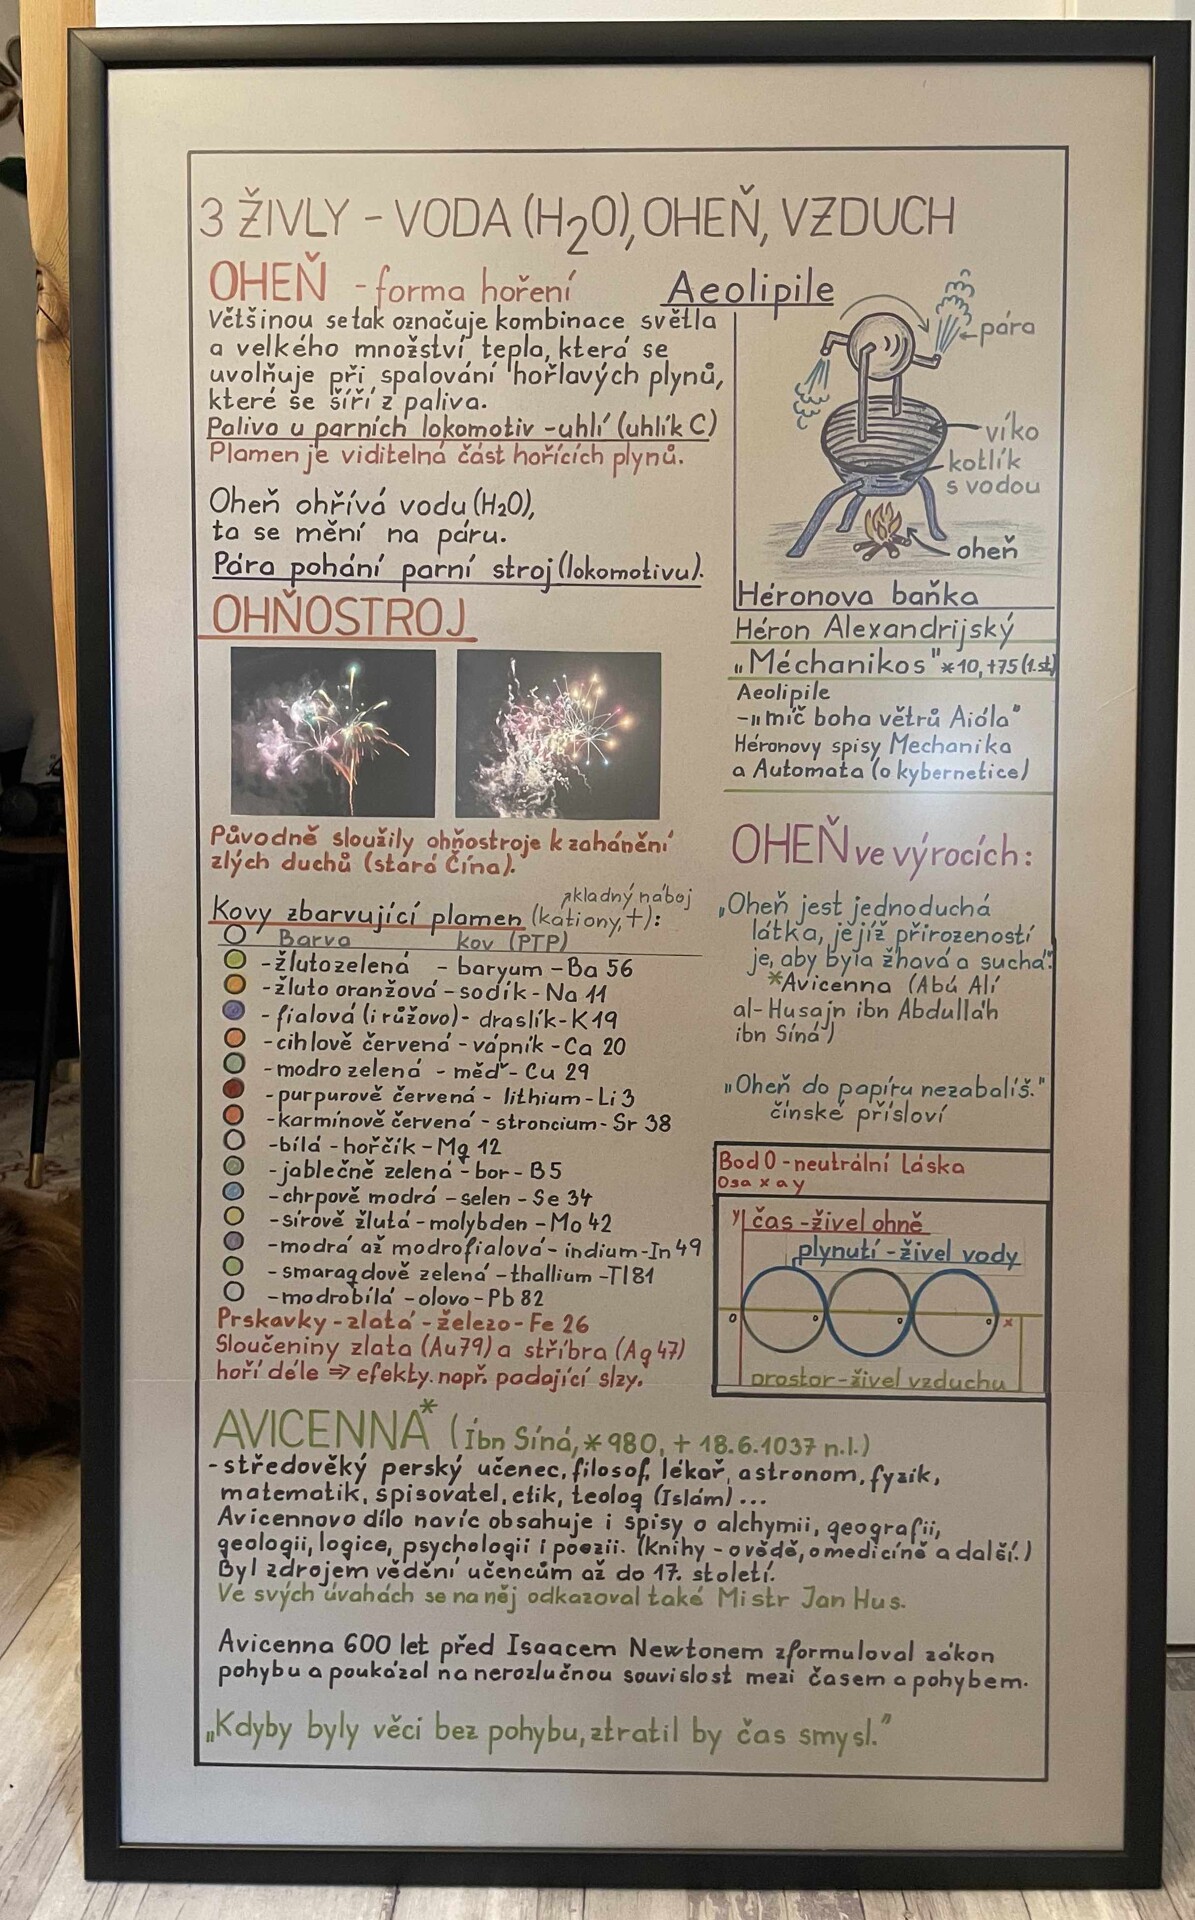 3 ŽIVLY - VODA (H₂O), OHEŇ, VZDUCH
OHEŇ - forma hoření
Většinou se tak označuje kombinace světla
a velkého množství tepla, která se
uvolňuje při spalování hořlavých plynů,
které se šíří z paliva.
Palivo u parních lokomotiv - uhlí (uhlík C)
Plamen je viditelná část hořících plynů.
Oheň ohřívá vodu (H₂O),
ta se mění na páru.
Pára pohání parní stroj (lokomotivu).
Aeolipile
pára
víko
kotlík
s vodou
oheň
Héronova baňka
Héron Alexandrijský
„Méchanikos" *10, +75 (1.st)
Aeolipile
-„míč boha větrů Aióla"
Héronovy spisy Mechanika
a Automata (o kybernetice)
OHŇOSTROJ
Původně sloužily ohňostroje k zahánění
zlých duchů (stará Čína).
kladný náboj
Kovy zbarvující plamen (kationy, +):
Barva kov (PTP)
- žlutozelená - baryum - Ba 56
- žluto oranžová - sodík - Na 11
- fialová (i růžovo) - draslík - K 19
- cihlově červená - vápník - Ca 20
- modro zelená - měď - Cu 29
- purpurově červená - lithium - Li 3
- karmínově červená - stroncium - Sr 38
- bílá - hořčík - Mg 12
- jablečně zelená - bor - B 5
- chrpově modrá - selen - Se 34
- sírově žlutá - molybden - Mo 42
- modrá až modrofialová - indium - In 49
- smaragdově zelená - thallium - Tl 81
- modrobílá - olovo - Pb 82
Prskavky - zlatá - železo - Fe 26
Sloučeniny zlata (Au79) a stříbra (Ag 47)
hoří déle ⇒ efekty. např. padající slzy.
OHEŇ ve výrocích:
„Oheň jest jednoduchá
látka, jejíž přirozeností
je, aby byla žhavá a suchá"
*Avicenna (Abú Alí
al-Husajn ibn Abdulláh
ibn Síná)
„Oheň do papíru nezabalíš."
čínské přísloví
Bod 0 - neutrální Láska
Osa x a y
y čas - živel ohně
plynutí - živel vody
0 0 0 0 x
prostor - živel vzduchu
AVICENNA* (Ibn Síná, *980, + 18.6.1037 n.l.)
- středověký perský učenec, filosof, lékař, astronom, fyzik,
matematik, spisovatel, etik, teolog (Islám) ...
Avicennovo dílo navíc obsahuje i spisy o alchymii, geografii,
geologii, logice, psychologii i poezii. (Knihy - o vědě, o medicíně a další.)
Byl zdrojem vědění učencům až do 17. století.
Ve svých úvahách se na něj odkazoval také Mistr Jan Hus.
Avicenna 600 let před Isaacem Newtonem zformuloval zákon
pohybu a poukázal na nerozlučnou souvislost mezi časem a pohybem.
„Kdyby byly věci bez pohybu, ztratil by čas smysl."